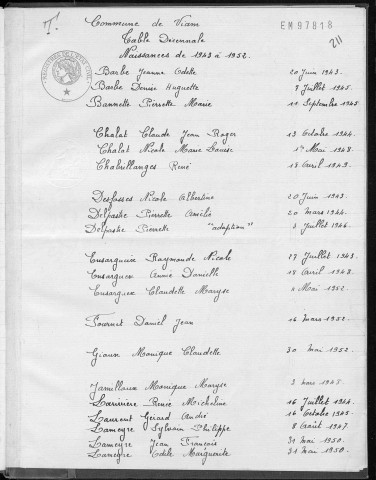 T.
Commune de Viam
EM97818
Table Decennale
211
Naissances de 1943 à 1952.
Barbe Jeanne Odette 20 Juin 1943.
Barbe Denise Huguette 3 Juillet 1945.
Bannette Pierrette Marie 11 Septembre 1945
Chalot Claude Jean Roger 13 Octobre 1944.
Chalot Nicole Marie Louise 1er Mai 1948.
Chabrillanges René 18 Avril 1949.
Desfosses Nicole Albertine 20 Juin 1943.
Delpastre Pierrette Amélie 20 mars 1944.
Delpastre Pierrette "adoption" 3 Juillet 1946.
Ensergueix Raymonde Nicole 27 Juillet 1943.
Ensergueix Annie Danielle 18 Avril 1948.
Ensergueix Claudette Maryse 4 Mai 1952.
Fournet Daniel Jean 16 Mars 1952.
Giaux Monique Claudette 30 Mai 1952.
Jamilloux Monique Maryse 2 mars 1948.
Larivière Renée Micheline 16 Juillet 1944.
Laurent Gérard André 16 Octobre 1945.
Lameyre Sylvain Philippe 8 Août 1947.
Lameyre Jean François 31 Mai 1950.
Lameyre Odile Marguerite 31 Mai 1950.